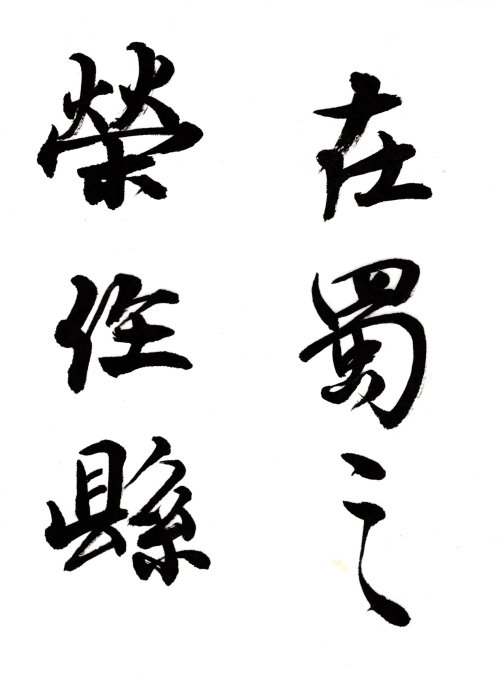 在蜀之
榮任縣